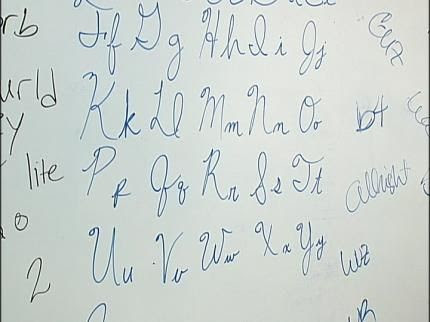 Ff Gg Hh Ii Jj
Kk Ll Mm Nn Oo
Pp Qq Rr Ss Tt
Uu Vv Ww Xx Yy
rb
urld
y
lite
o
2
Allright